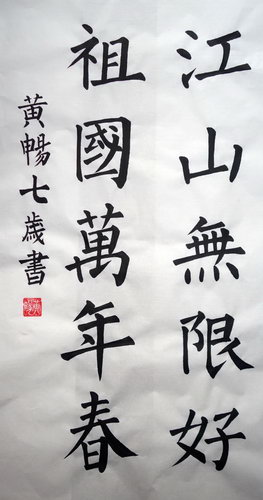 江山無限好
祖國萬年春
黄暢七歲書